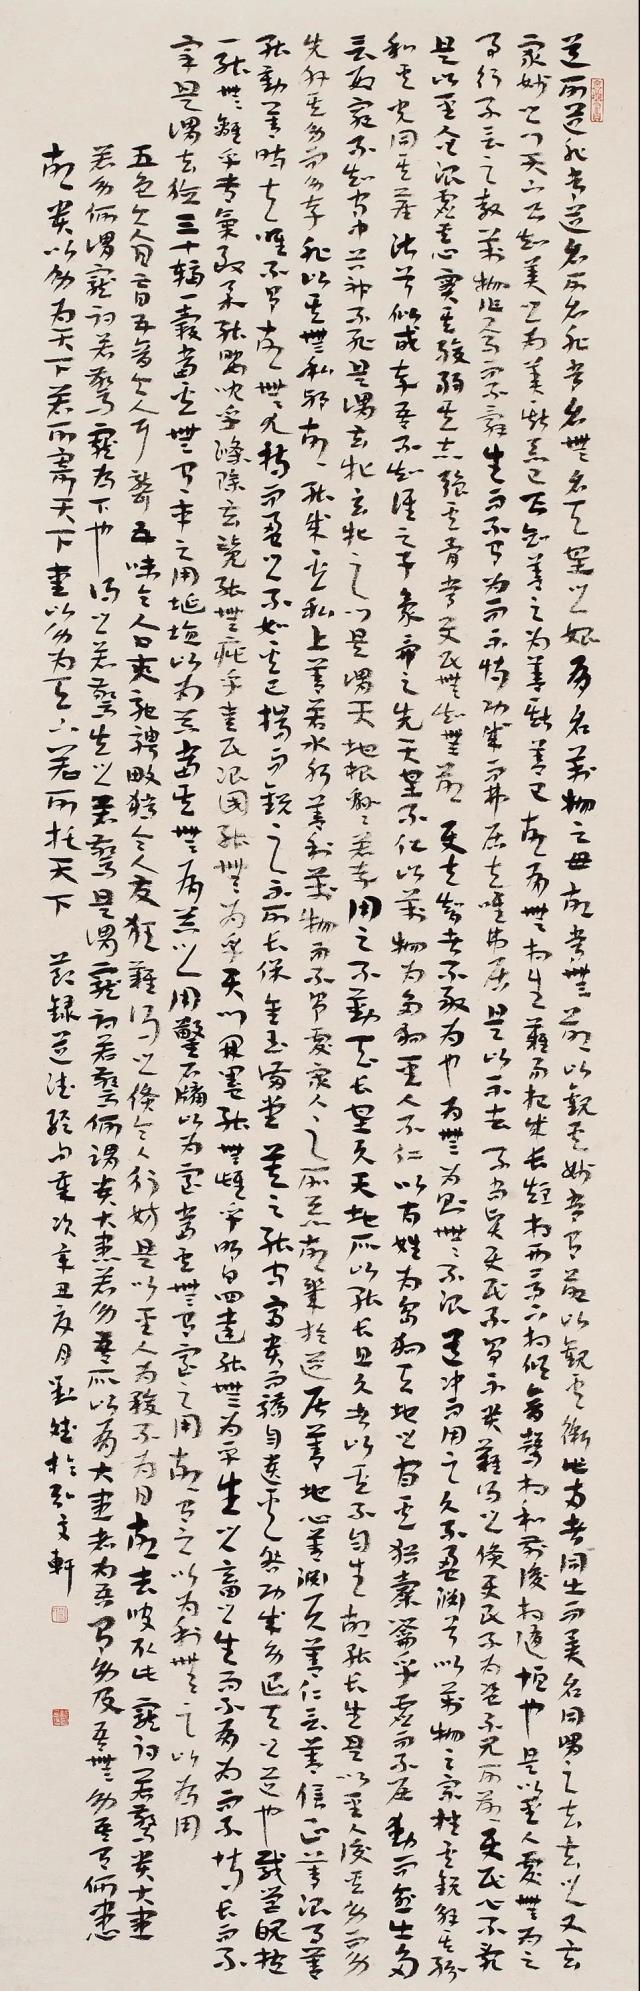 道可道非常道名可名非常名無名天地之始有名萬物之母故常無欲以觀其妙常有欲以觀其徼此兩者同出而異名同謂之玄玄之又玄
眾妙之門天下皆知美之為美斯惡已皆知善之為善斯善已故有無相生難易相成長短相形高下相傾音聲相和前後相隨恒也是以聖人處無為之
事行不言之教萬物作焉而不辭生而不有為而不恃功成而弗居夫唯弗居是以不去不尚賢使民不爭不貴難得之貨使民不為盜不見可欲使民心不亂
是以聖人治虛其心實其腹弱其志強其骨常使民無知無欲使夫智者不敢為也為無為則無不治道沖而用之久不盈淵兮似萬物之宗挫其銳解其紛
和其光同其塵湛兮似或存吾不知誰之子象帝之先天地不仁以萬物為芻狗聖人不仁以百姓為芻狗天地之間其猶橐籥乎虛而不屈動而愈出多
言數窮不如守中谷神不死是謂玄牝玄牝之門是謂天地根綿綿若存用之不勤天長地久天地所以能長且久者以其不自生故能長生是以聖人後其身而身
先外其身而身存非以其無私邪故能成其私上善若水水善利萬物而不爭處眾人之所惡故幾於道居善地心善淵與善仁言善信正善治事善
能動善時夫唯不爭故無尤持而盈之不如其已揣而銳之不可長保金玉滿堂莫之能守富貴而驕自遺其咎功成身退天之道也載營魄抱
一能無離乎專氣致柔能嬰兒乎滌除玄覽能無疵乎愛民治國能無為乎天門開闔能無雌乎明白四達能無為乎生之畜之生而不有為而不恃長而不
宰是謂玄德三十輻一轂當其無有車之用埏埴以為器當其無有器之用鑿戶牖以為室當其無有室之用故有之以為利無之以為用
五色令人目盲五音令人耳聾五味令人口爽馳騁畋獵令人發狂難得之貨令人行妨是以聖人為腹不為目故去彼取此寵辱若驚貴大患
若身何謂寵辱若驚寵為下也得之若驚失之若驚是謂寵辱若驚何謂貴大患若身吾所以有大患者為吾有身及吾無身吾有何患
故貴以身為天下若可寄天下愛以身為天下若可托天下 節錄道德經句章次辛丑夏月